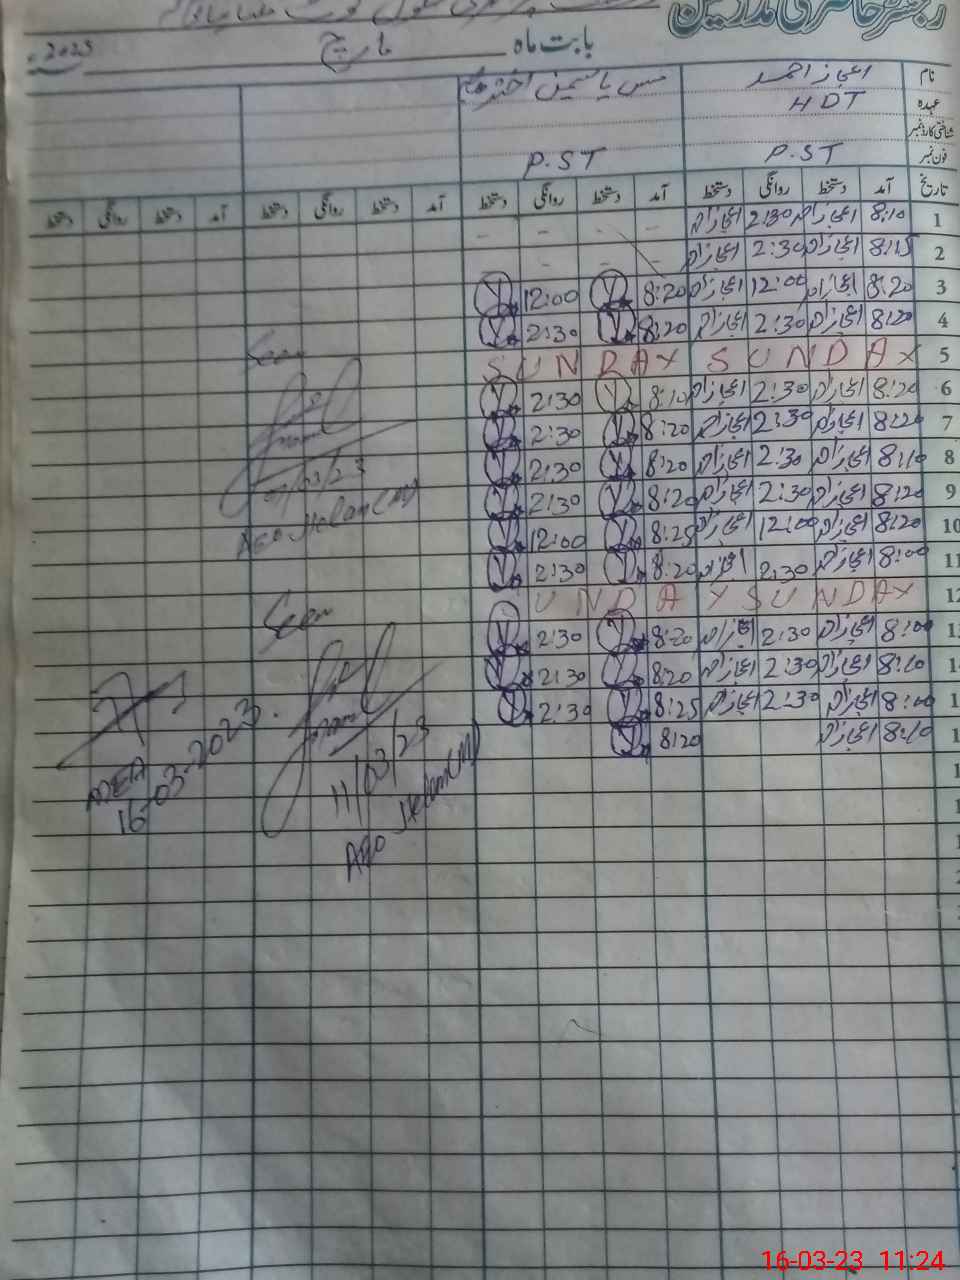 رجسٹر حاضری مدرسین
بابت ماہ مارچ 2023
نام اعجاز احمد مس یاسمین اختر
عہدہ HDT
شناختی کارڈ نمبر
فون نمبر P.ST P.ST
تاریخ آمد دستخط روانگی دستخط آمد دستخط روانگی دستخط آمد دستخط روانگی دستخط آمد دستخط روانگی دستخط
1 8:10 اعجاز 2:30 اعجاز - - - -
2 8:15 اعجاز 2:30 اعجاز - - -
3 8:20 اعجاز 12:00 اعجاز 8:20 12:00
4 8:20 اعجاز 2:30 اعجاز 8:20 2:30
5 SUNDAY SUNDAY
6 8:20 اعجاز 2:30 اعجاز 8:10 2:30
7 8:20 اعجاز 2:30 اعجاز 8:20 2:30
8 8:10 اعجاز 2:30 اعجاز 8:20 2:30
9 8:20 اعجاز 2:30 اعجاز 8:20 2:30
10 8:20 اعجاز 12:00 اعجاز 8:25 12:00
11 8:00 اعجاز 2:30 اعجاز 8:20 2:30
12 SUNDAY UNDAY
1 8:00 اعجاز 2:30 اعجاز 8:20 2:30
1 8:10 اعجاز 2:30 اعجاز 8:20 2:30
1 8:00 اعجاز 2:30 اعجاز 8:25 2:30
1 8:10 اعجاز 8:20
Seen
07/03/23
AEO Jhelam (M)
Seen
11/03/23
AEO Jhelam (M)
MEA
16-03-2023
16-03-23 11:24